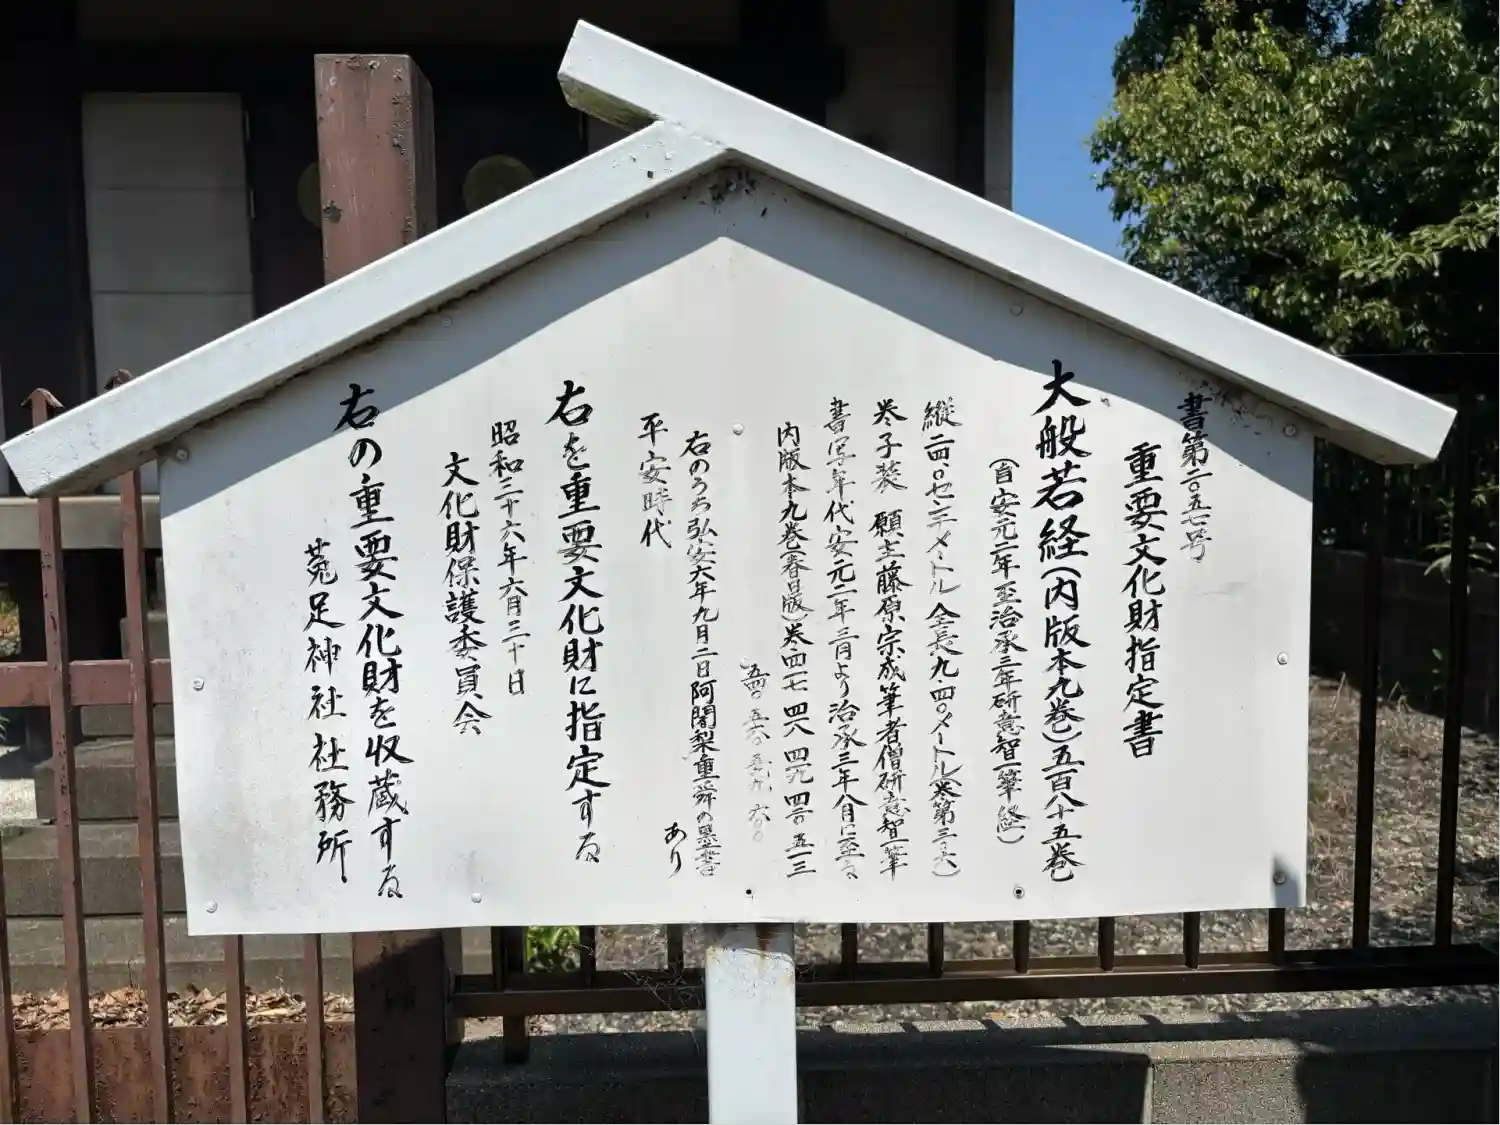 書第二〇五七号
重要文化財指定書
大般若経(内版本九巻)五百八十五巻
(自安元二年至治承三年研意智筆経)
縦二四、〇センチメートル 全長九、四〇メートル(巻第三、六)
巻子装 願主藤原宗成筆者僧研意智一筆
書写年代安元二年三月より治承三年八月に至る
内版本九巻(春日版)巻四一七 四一八 四一九 四二〇 五一三
右のうち弘安六年九月二日阿闍梨重舜の墨書
あり
平安時代
右を重要文化財に指定する
昭和三十六年六月三十日
文化財保護委員会
右の重要文化財を収蔵する
菟足神社社務所